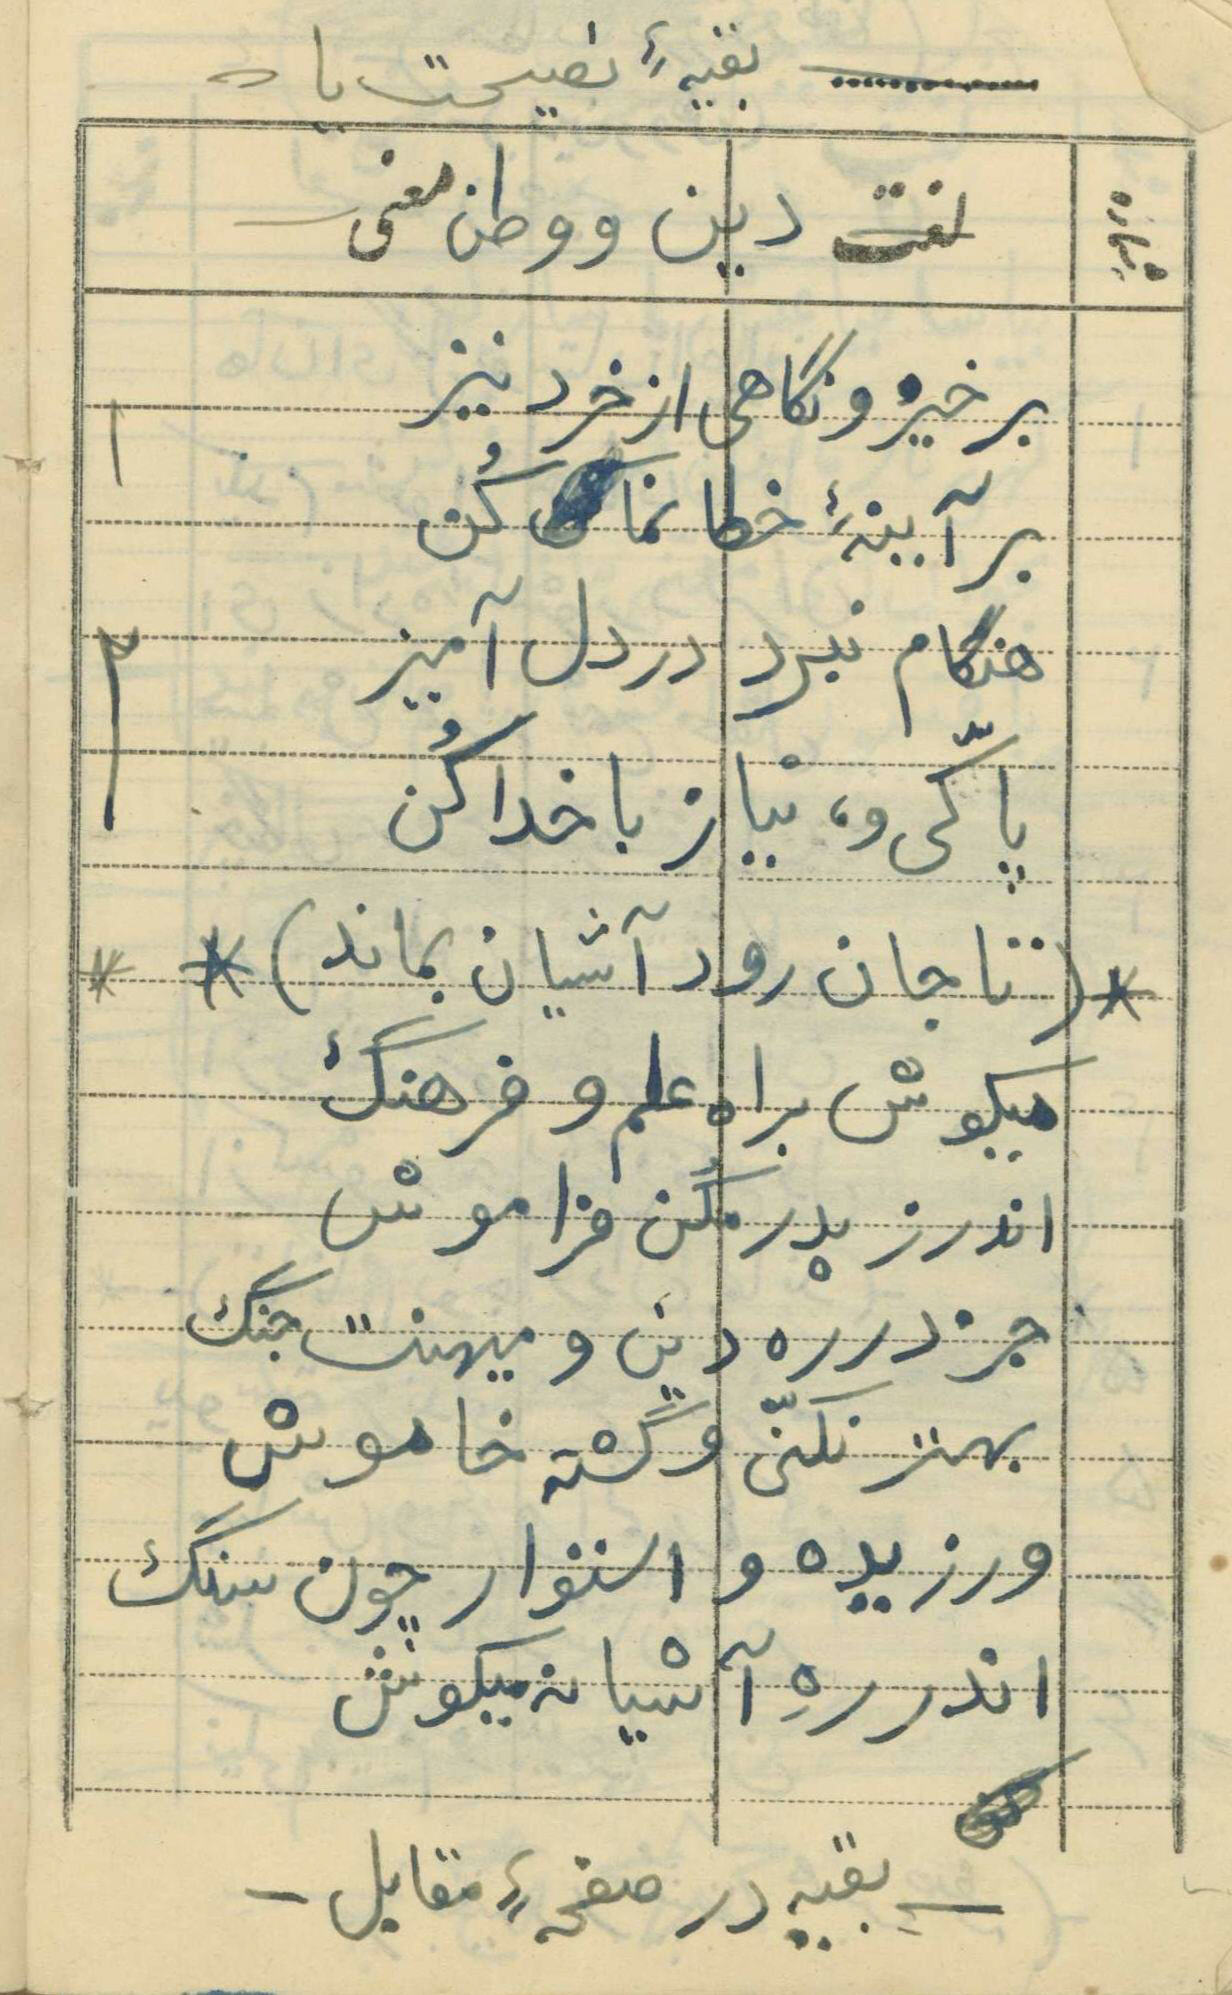 بقیهٔ نصیحت یا
شماره لغت دین و وطن معنی
برخیز و نگاهی از خرد نیز
۱
بر آیینهٔ خطا نما کن
هنگام نبرد در دل آمیز
۲
پاکّی و، نیاز با خدا کُن
* (تا جان رود آشیان بماند) * *
میکوش براه علم و فرهنگ
اندرز پدر مکُن فراموش
جز در ره دین و میهنت جنگ
بهتر نکنّی و گشته خاموش
ورزیده و استوار چون سنگ
اندر رهِ آشیانه میکوش
– بقیه در صفحهٔ مقابل –